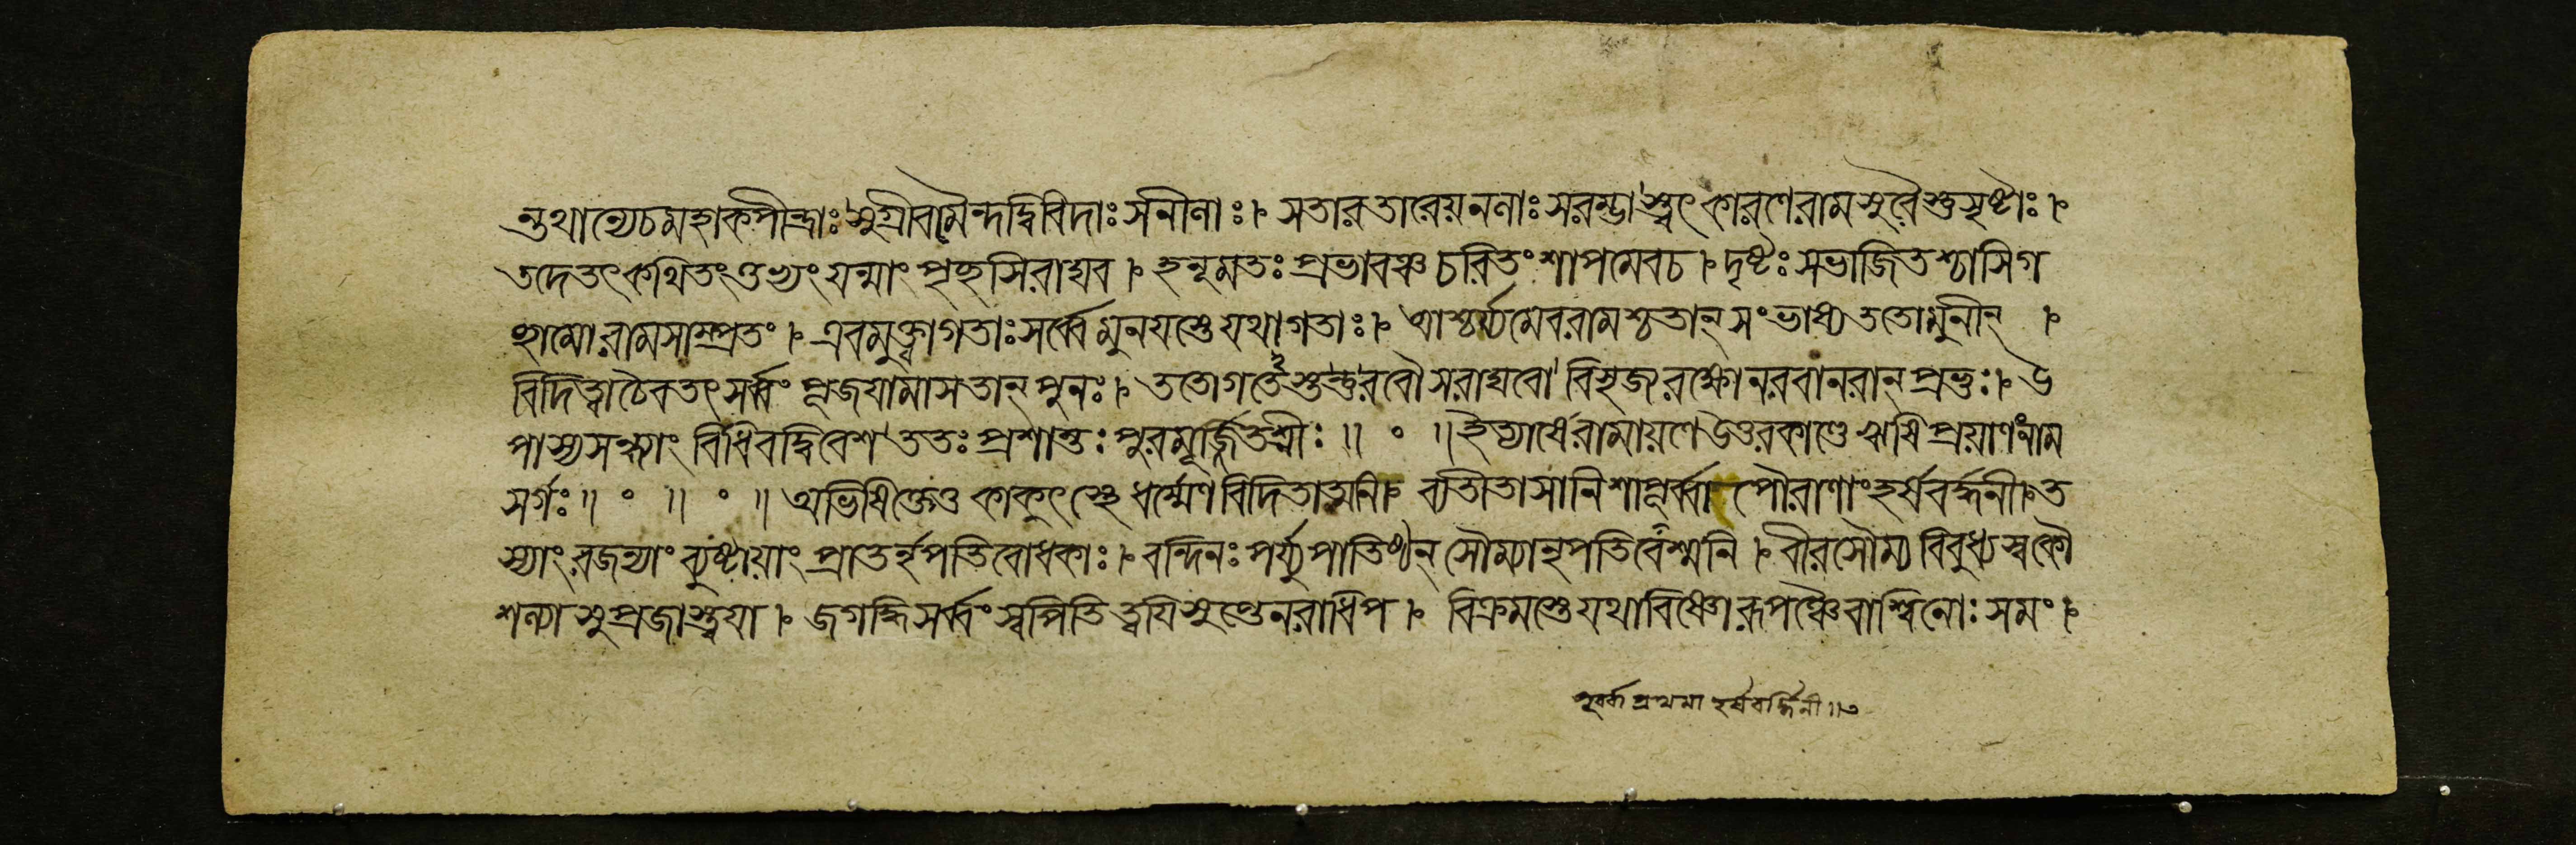 ন্তথান্যেচমহাকপীন্দ্রাঃ সুগ্রীবমৈন্দদ্বিবিদাঃ সনীলাঃ। সতারতারেয়নলাঃ সরম্ভাস্ত্বৎ কারণেরামসুরৈস্তুসৃষ্টাঃ।
তদেতৎকথিতংতুভ্যং যন্মাং পৃচ্ছসিরাঘব। হনূমতঃ প্রভাবঞ্চ চরিতং শাপমেবচ। দৃষ্টঃ সভাজিতশ্চাসিগ
চ্ছামোরামসাম্প্রতং। এবমুক্ত্বাগতাঃ সর্ব্বে মুনয়স্তে যথাগতাঃ। আশ্চর্য্যমেবরামশ্চতান্ সংভাষ্য ততোমুনীন্।
বিদিত্বাচৈবতৎসর্ব্বং পূজয়ামাসতান্ পুনঃ। ততোগতেঽস্তন্তুরবৌসরাঘবো বিসৃজ্যরক্ষোনরবানরান্ প্রভুঃ। উ
পাস্যসন্ধ্যাং বিধিবদ্বিবেশ ততঃ প্রশান্তঃ পুরমূর্জ্জিতশ্রীঃ॥ ॰ ॥ ইত্যার্ষেরামায়ণে উত্তরকাণ্ডে ঋষিপ্রয়াণং নাম
সর্গঃ॥ ॰ ॥ ॰ ॥ অভিষিক্তেতু কাকুৎস্থে ধর্ম্মেণ বিদিতাত্মনি। ব্যতীতাসানিশাপূর্ব্বা পৌরাণাং হর্ষবর্দ্ধনী। ত
স্যাং রজন্যাং ব্যুষ্টায়াং প্রাতর্নৃপতিবোধকাঃ। বন্দিনঃ পর্য্যুপাতিষ্ঠন্ সৌম্যানৃপতিবেশ্মনি। বীরসৌম্য বিবুধ্যস্বকৌ
শল্যা সুপ্রজাস্ত্বয়া। জগদ্ধিসর্ব্বং স্বপিতি ত্বয়িসুপ্তেনরাধিপ। বিক্রমস্তে যথাবিষ্ণো রূপঞ্চৈবাশ্বিনোঃ সমং।
পূর্ব্বা প্রথমা হর্ষবর্দ্ধিনী॥